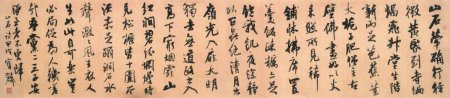 山石犖确行徑
微黃昏到寺蝙
蝠飛升堂坐階
新雨足芭蕉葉
大梔子肥僧言古
壁佛畫好以火
來照所見稀
鋪床拂席置
羹飯疏糲亦足
飽我飢夜深靜臥
百蟲絕清月出
嶺光入扉天明
獨去無道路出入
高下窮煙霏山
紅澗碧紛爛漫時
見松櫪皆十圍當
流赤足蹋澗石水
聲激激風生衣人
生如此自可樂豈
必局束為人鞿嗟
哉吾黨二三子安
得至老不更歸